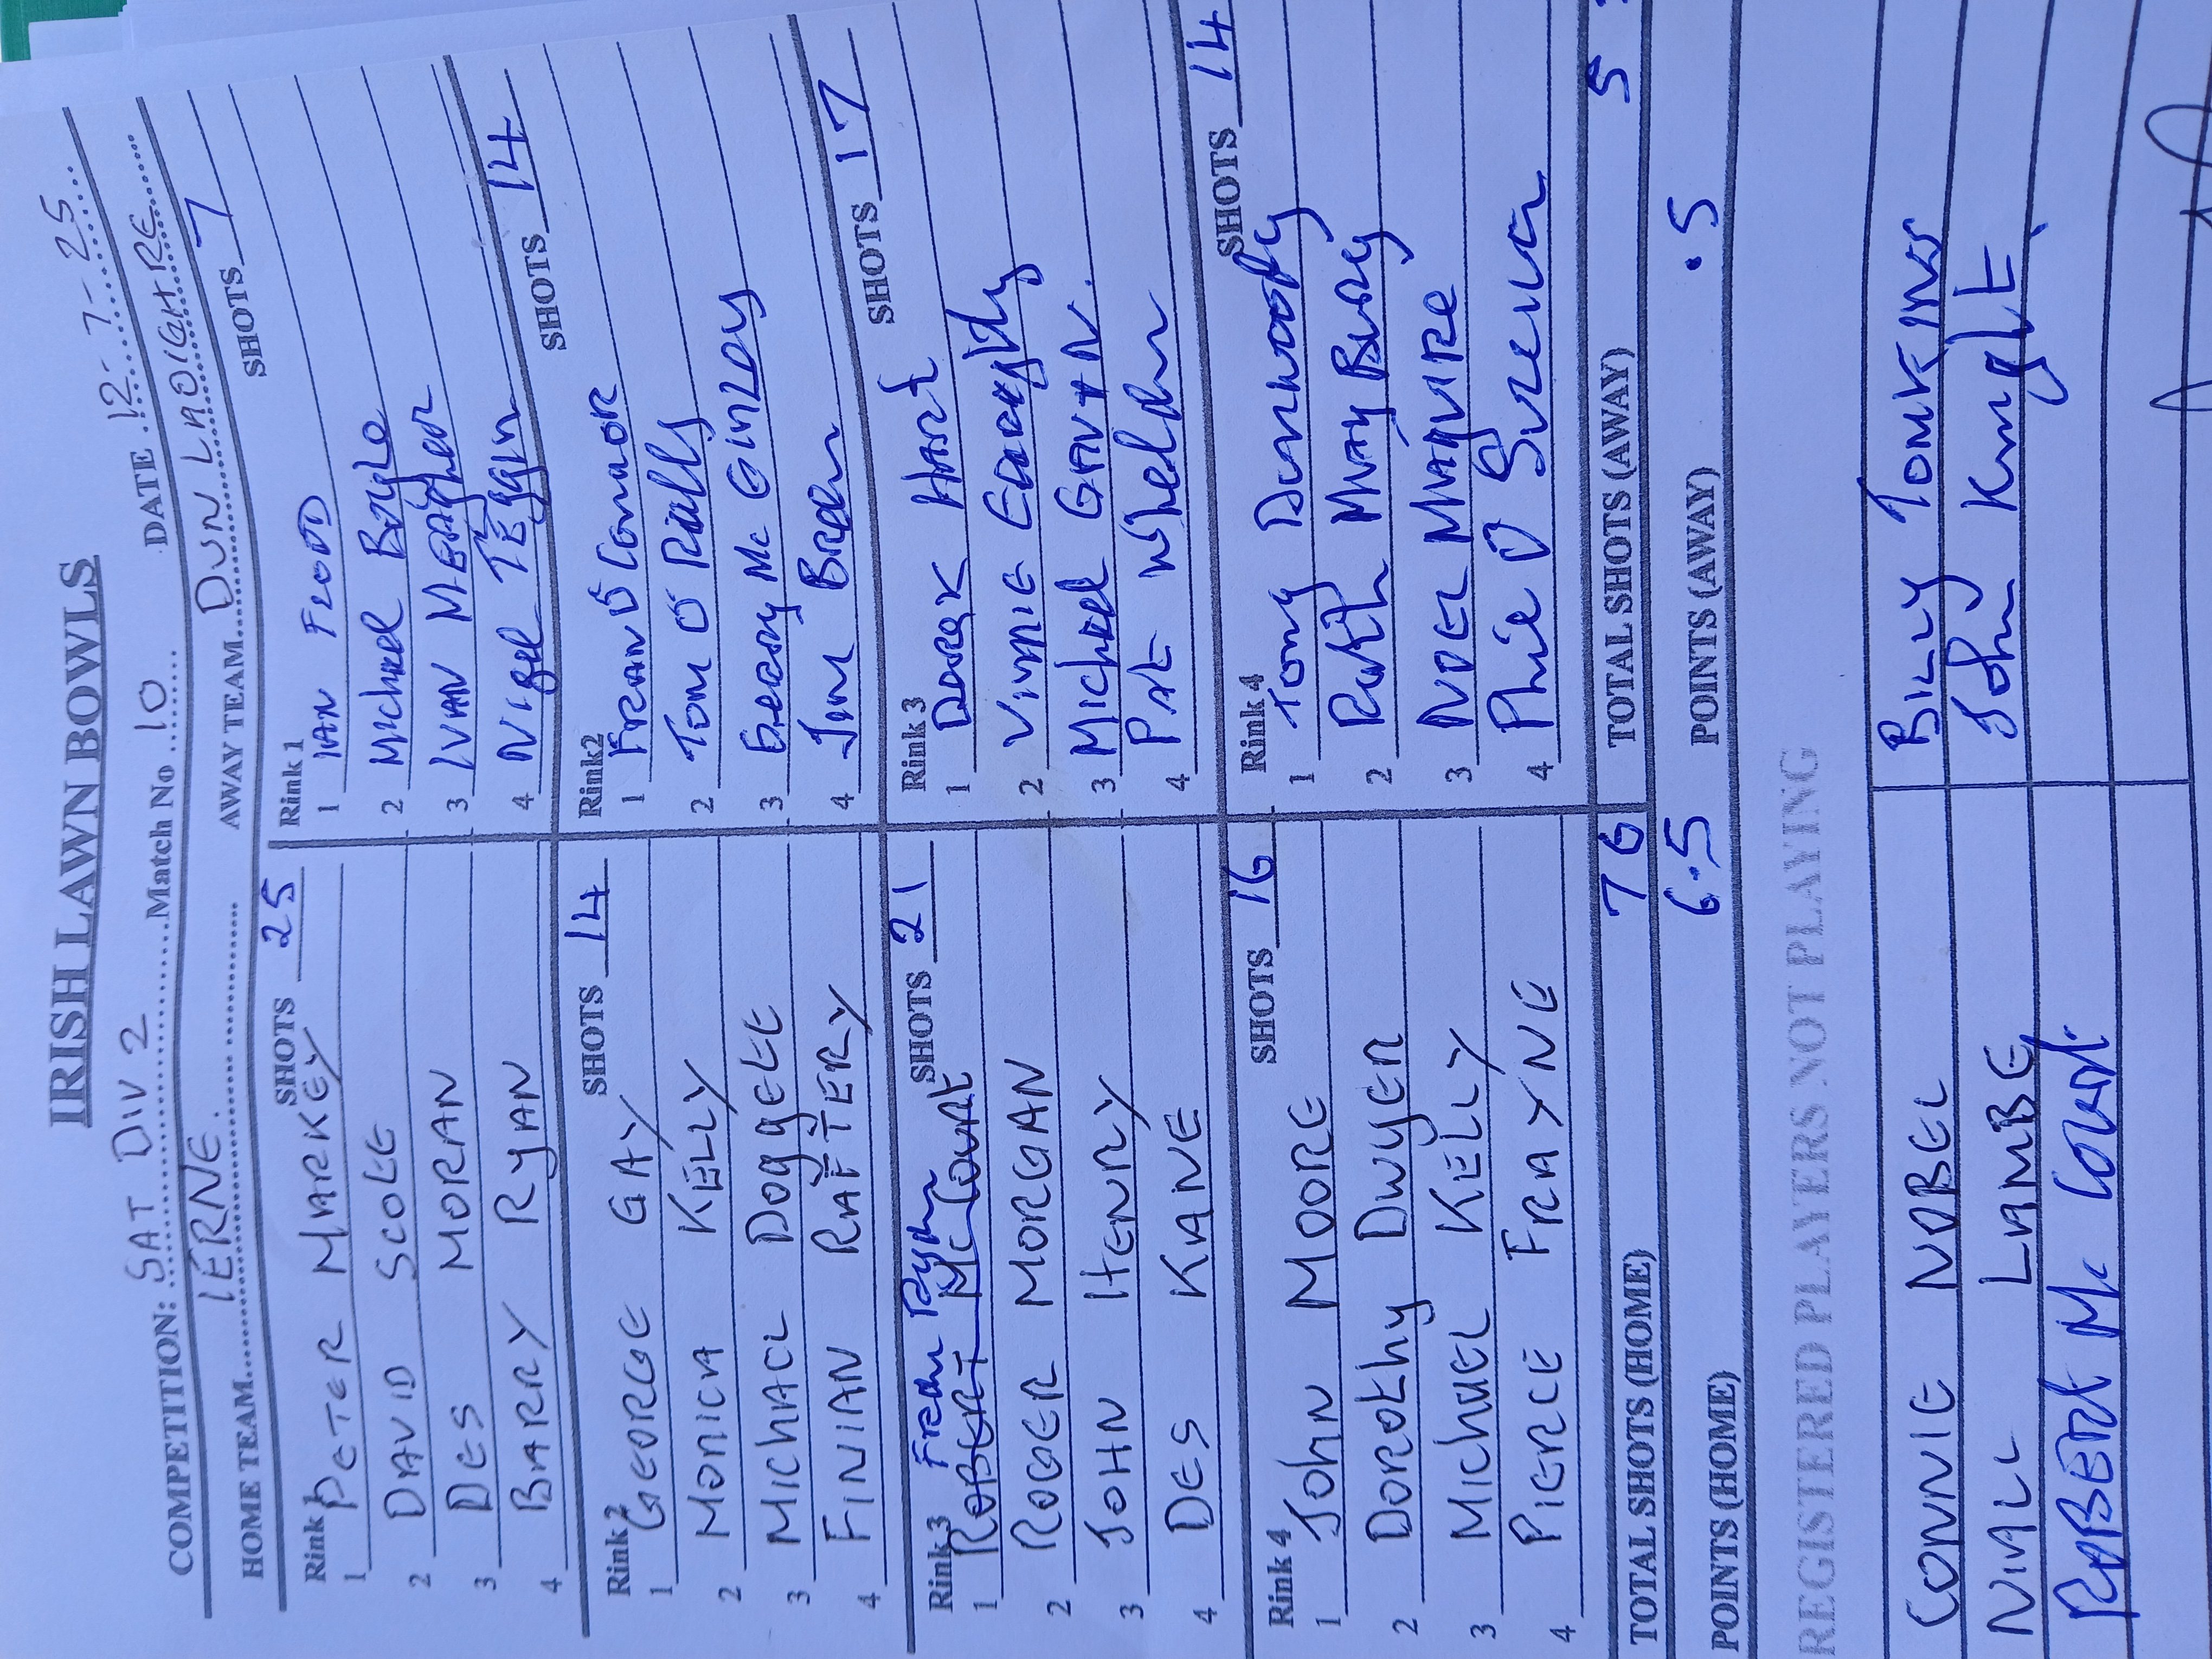 IRISH LAWN BOWLS
COMPETITION: SAT DIV 2 Match No 10 DATE 12-7-25
HOME TEAM IERNE. AWAY TEAM DUN LAOIGHRE
Rink 1 SHOTS 25
1 PETER MARKEY
2 DAVID SCOTT
3 DES MORAN
4 BARRY RYAN
Rink 2 SHOTS 14
1 GEORGE GAY
2 MONICA KELLY
3 MICHAEL DOGGETT
4 FINIAN RAFTERY
Rink 3 SHOTS 21
1 ROBERT MC COURT
2 ROGER MORGAN
3 JOHN HENRY
4 DES KANE
Rink 4 SHOTS 16
1 JOHN MOORE
2 DOROTHY DWYER
3 MICHAEL KELLY
4 PIERCE FRAYNE
TOTAL SHOTS (HOME) 76
POINTS (HOME) 6.5
Rink 1 SHOTS 7
1 IAN FLOOD
2 Michael Boyle
3 IVAN MEAGHER
4 Nigel TEggin
Rink2 SHOTS 14
1 Fran O Connor
2 Tom O
3 Gerry Mc GINLEY
4 Jim Breen
Rink 3 SHOTS 17
1 Derek HART
2 VINNIE Geraghty
3 Michael GAVIN.
4 PAT Whelan
Rink 4 SHOTS 14
1 Tony Dunwoody
2
3 NOEL MAGUIRE
4 O
TOTAL SHOTS (AWAY) 5
POINTS (AWAY) .5
REGISTERED PLAYERS NOT PLAYING
CONNIE NOBEL BILLY TOMKINS
NIALL LAMBE John Knight
ROBERT Mc Court